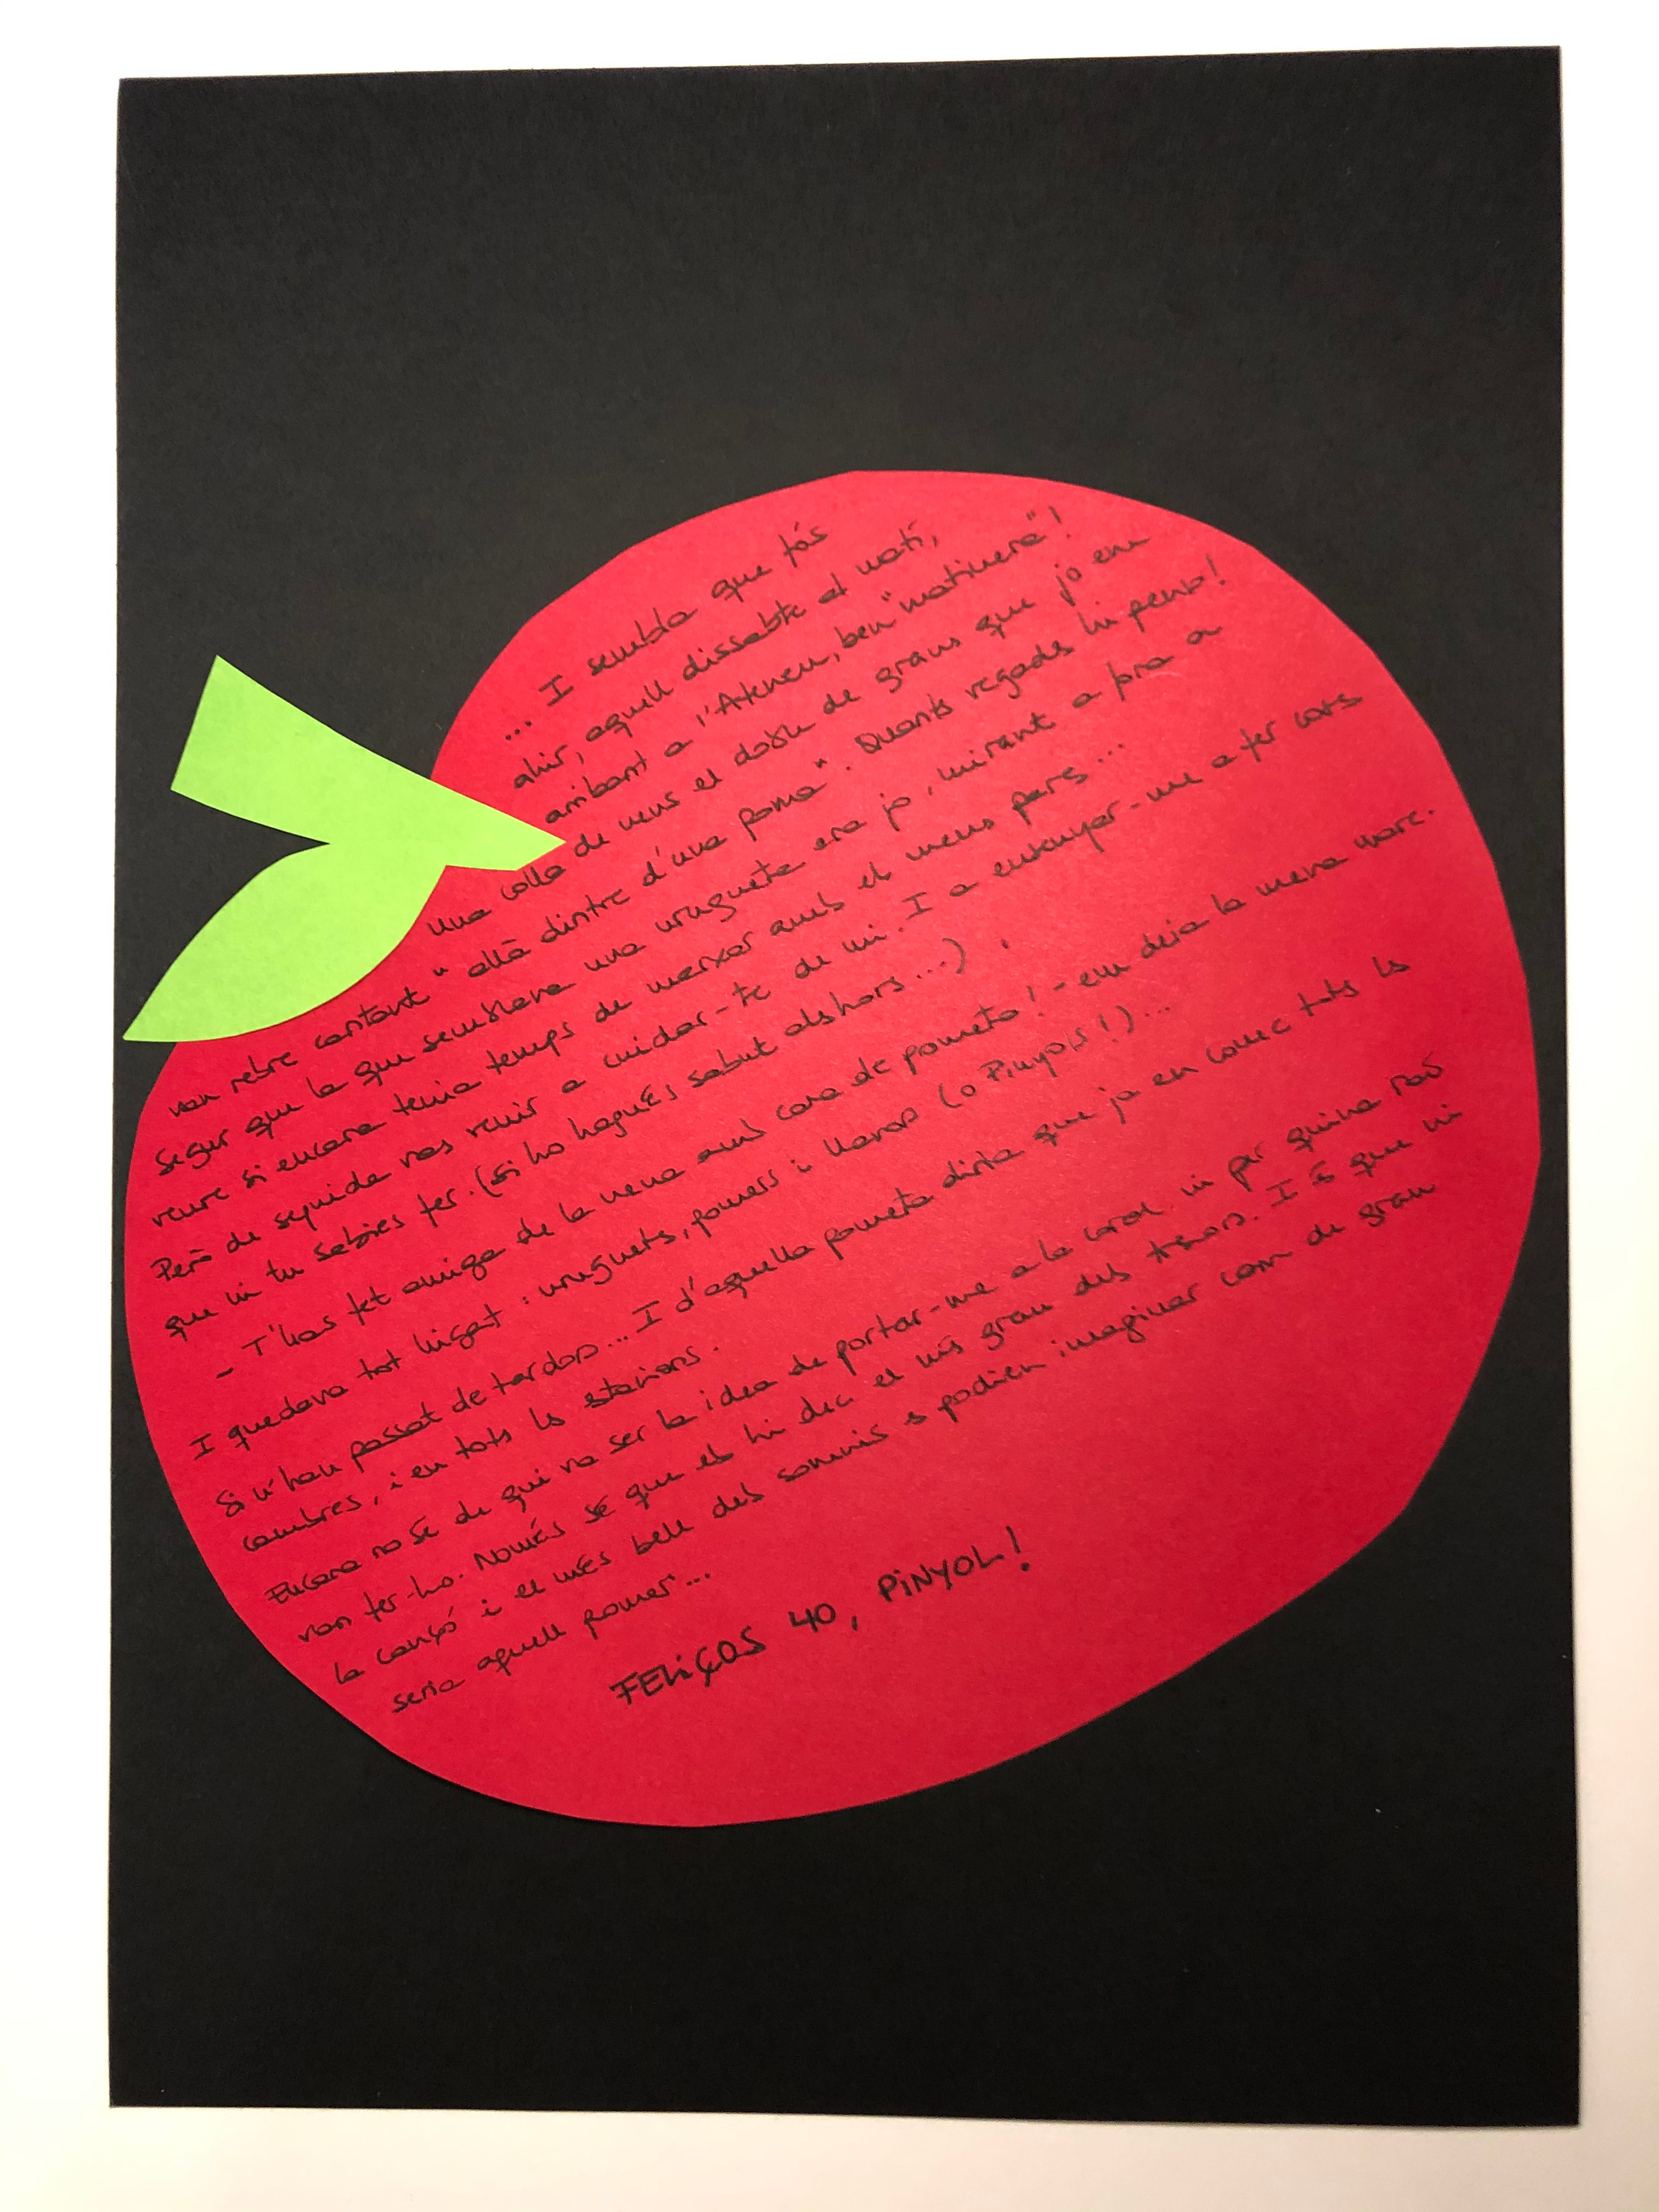 ... I sembla que fós
ahir, aquell dissabte al matí,
arribant a l'Ateneu, ben "matinera"!
una colla de nens el doble de grans que jo em
van rebre cantant "allà dintre d'una poma". Quants regads hi penso!
Segur que la que semblava una cugueta era jo, mirant a fora a
veure si encara tenia temps de marxar amb els meus pares...
Però de seguida vas venir a cuidar-te de mi. I a ensenyar-me a fer coses
que ni tu sabies fer. (Si ho hagués sabut aleshores...)
- T'has fet amiga de la nena amb cara de pometa! - em deia la meva mare.
I quedava tot lligat: cuguets, pomers i llavors (o Pinyols!)...
Si n'han passat de tardors... I d'aquella pometa diria que ja en conec totes les
cambres, i en totes les estacions.
Encara no sé de qui va ser la idea de portar-me a la coral ni per quina raó
van fer-ho. Només sé que els hi dec el més gran dels tresors. I és que ni
la cançó i el més bell dels somnis es podien imaginar com de gran
seria aquell pomer...
FELIÇOS 40, PiNYOL!